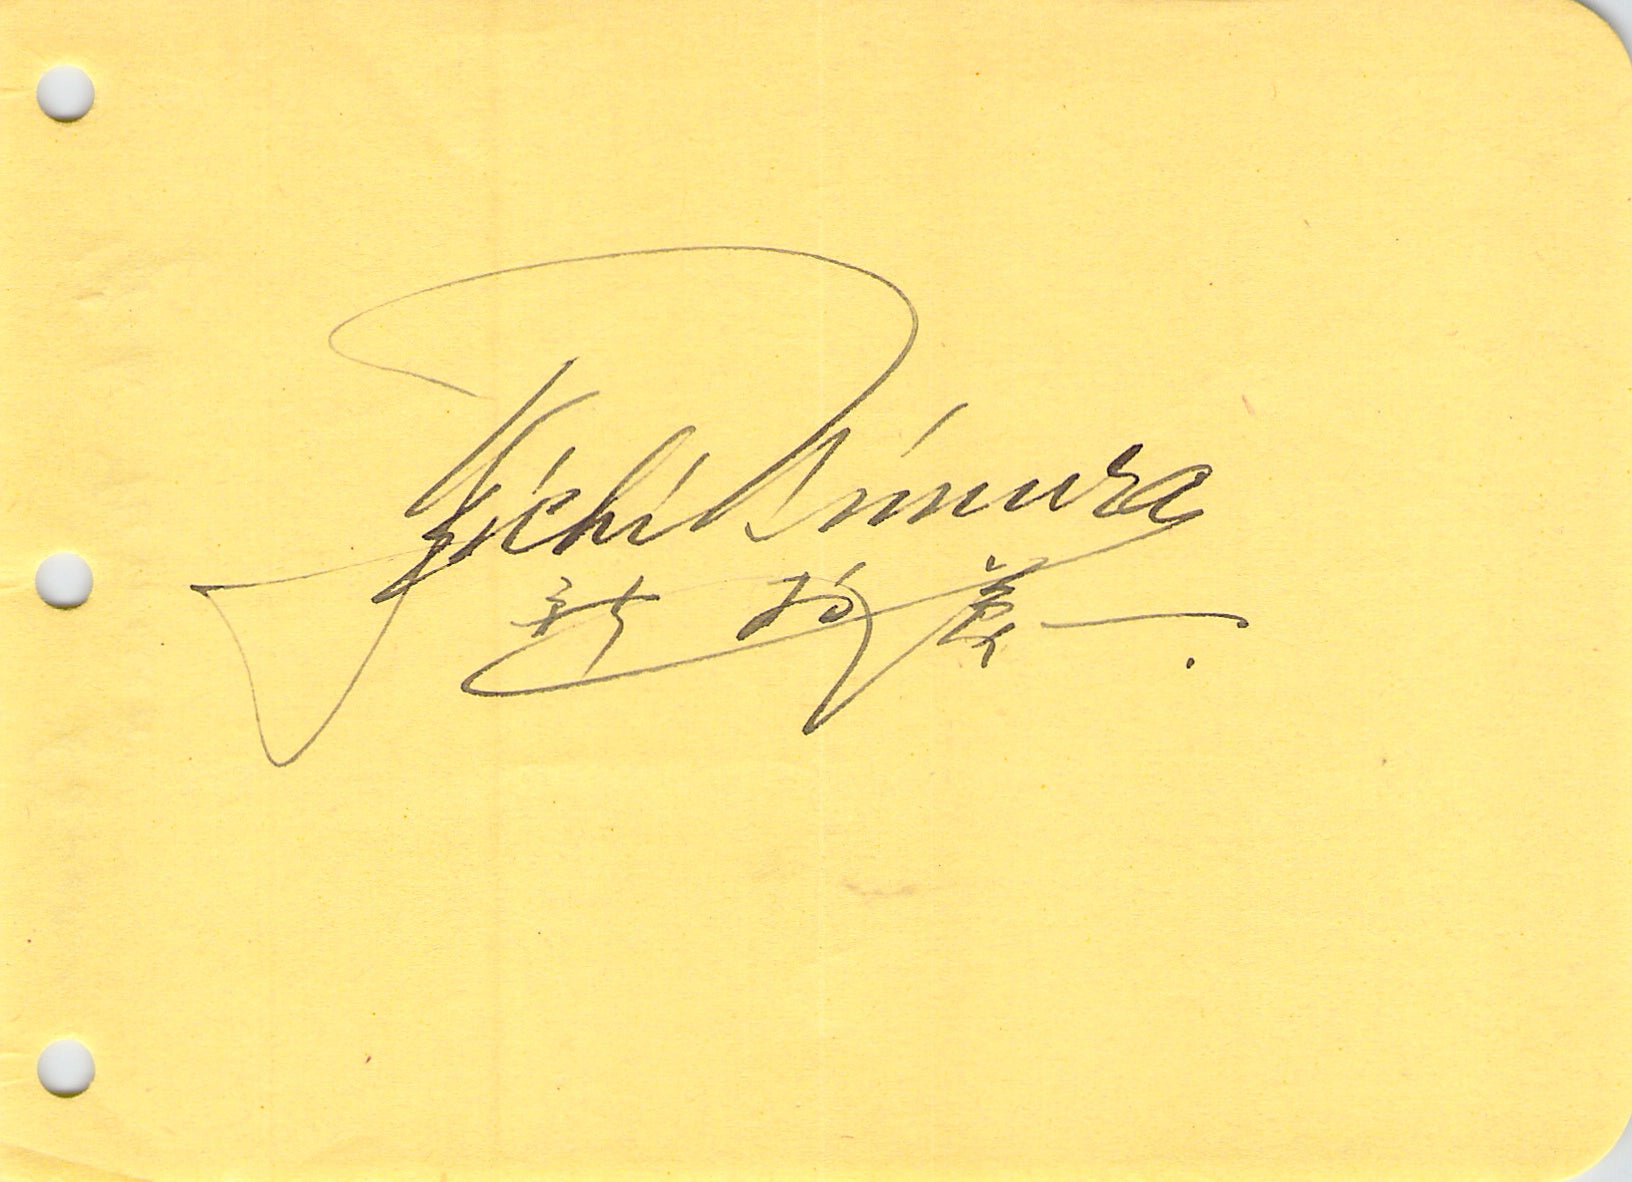 Yeichi Nimura
新村英一